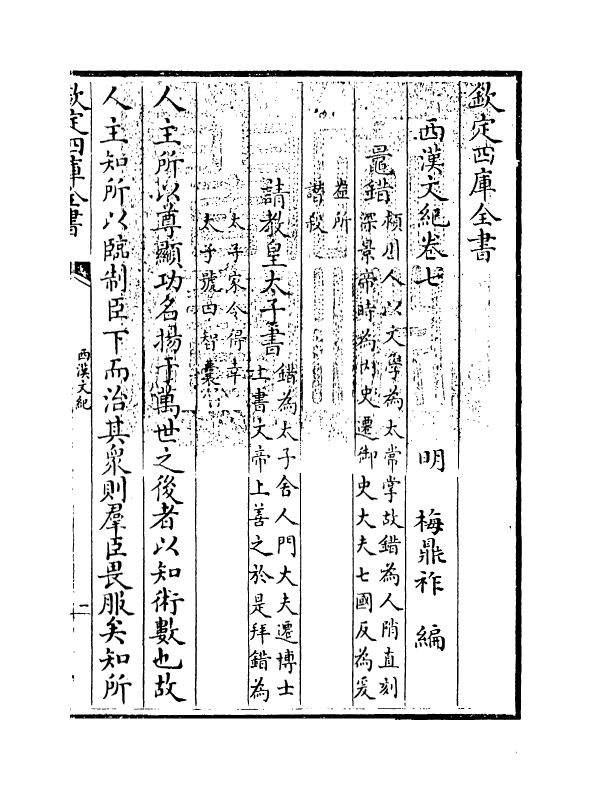 欽定四庫全書
西漢文紀卷七
明 梅鼎祚 編
鼂錯
頴川人以文學為太常掌故錯為人陗直刻
深景帝時為内史遷御史大夫七國反為爰
盎所
譛殺
請教皇太子書
錯為太子舍人門大夫遷博士
上書文帝上善之於是拜錯為
太子家令得幸
太子號曰智囊
人主所以尊顯功名揚于萬世之後者以知術數也故
人主知所以臨制臣下而治其衆則羣臣畏服矣知所
欽定四庫全書
西漢文紀
一